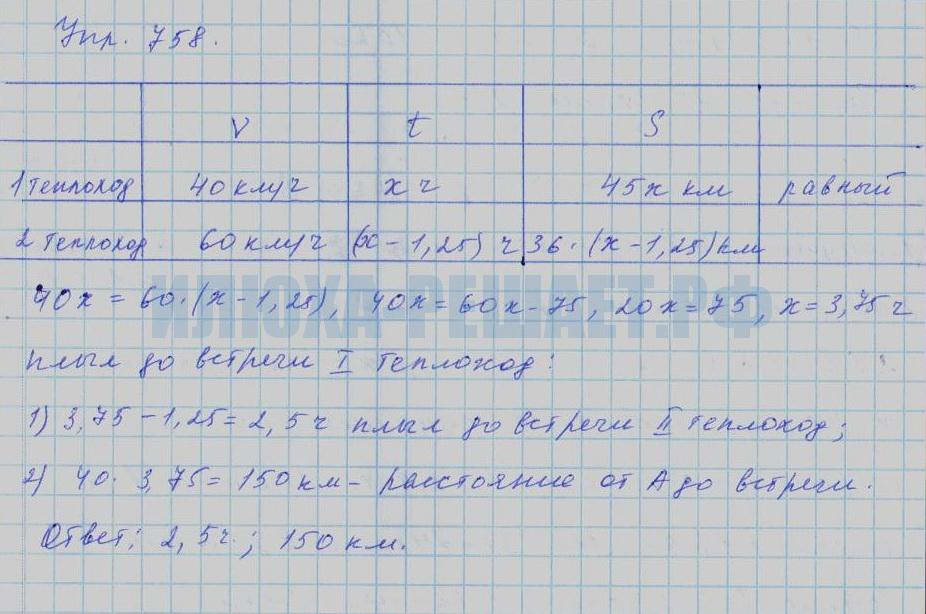 Упр. 758.
V t S
1 теплоход 40 км/ч х ч 45х км равный
2 теплоход 60 км/ч (х – 1,25) ч 36 · (х – 1,25) км
40х = 60 · (х – 1,25), 40х = 60х – 75, 20х = 75, х = 3,75 ч
ИЛЮХА-РЕШАЕТ.РФ
плыл до встречи I теплоход:
1) 3,75 – 1,25 = 2,5 ч плыл до встречи II теплоход;
2) 40 · 3,75 = 150 км – расстояние от А до встречи.
Ответ: 2,5 ч.; 150 км.